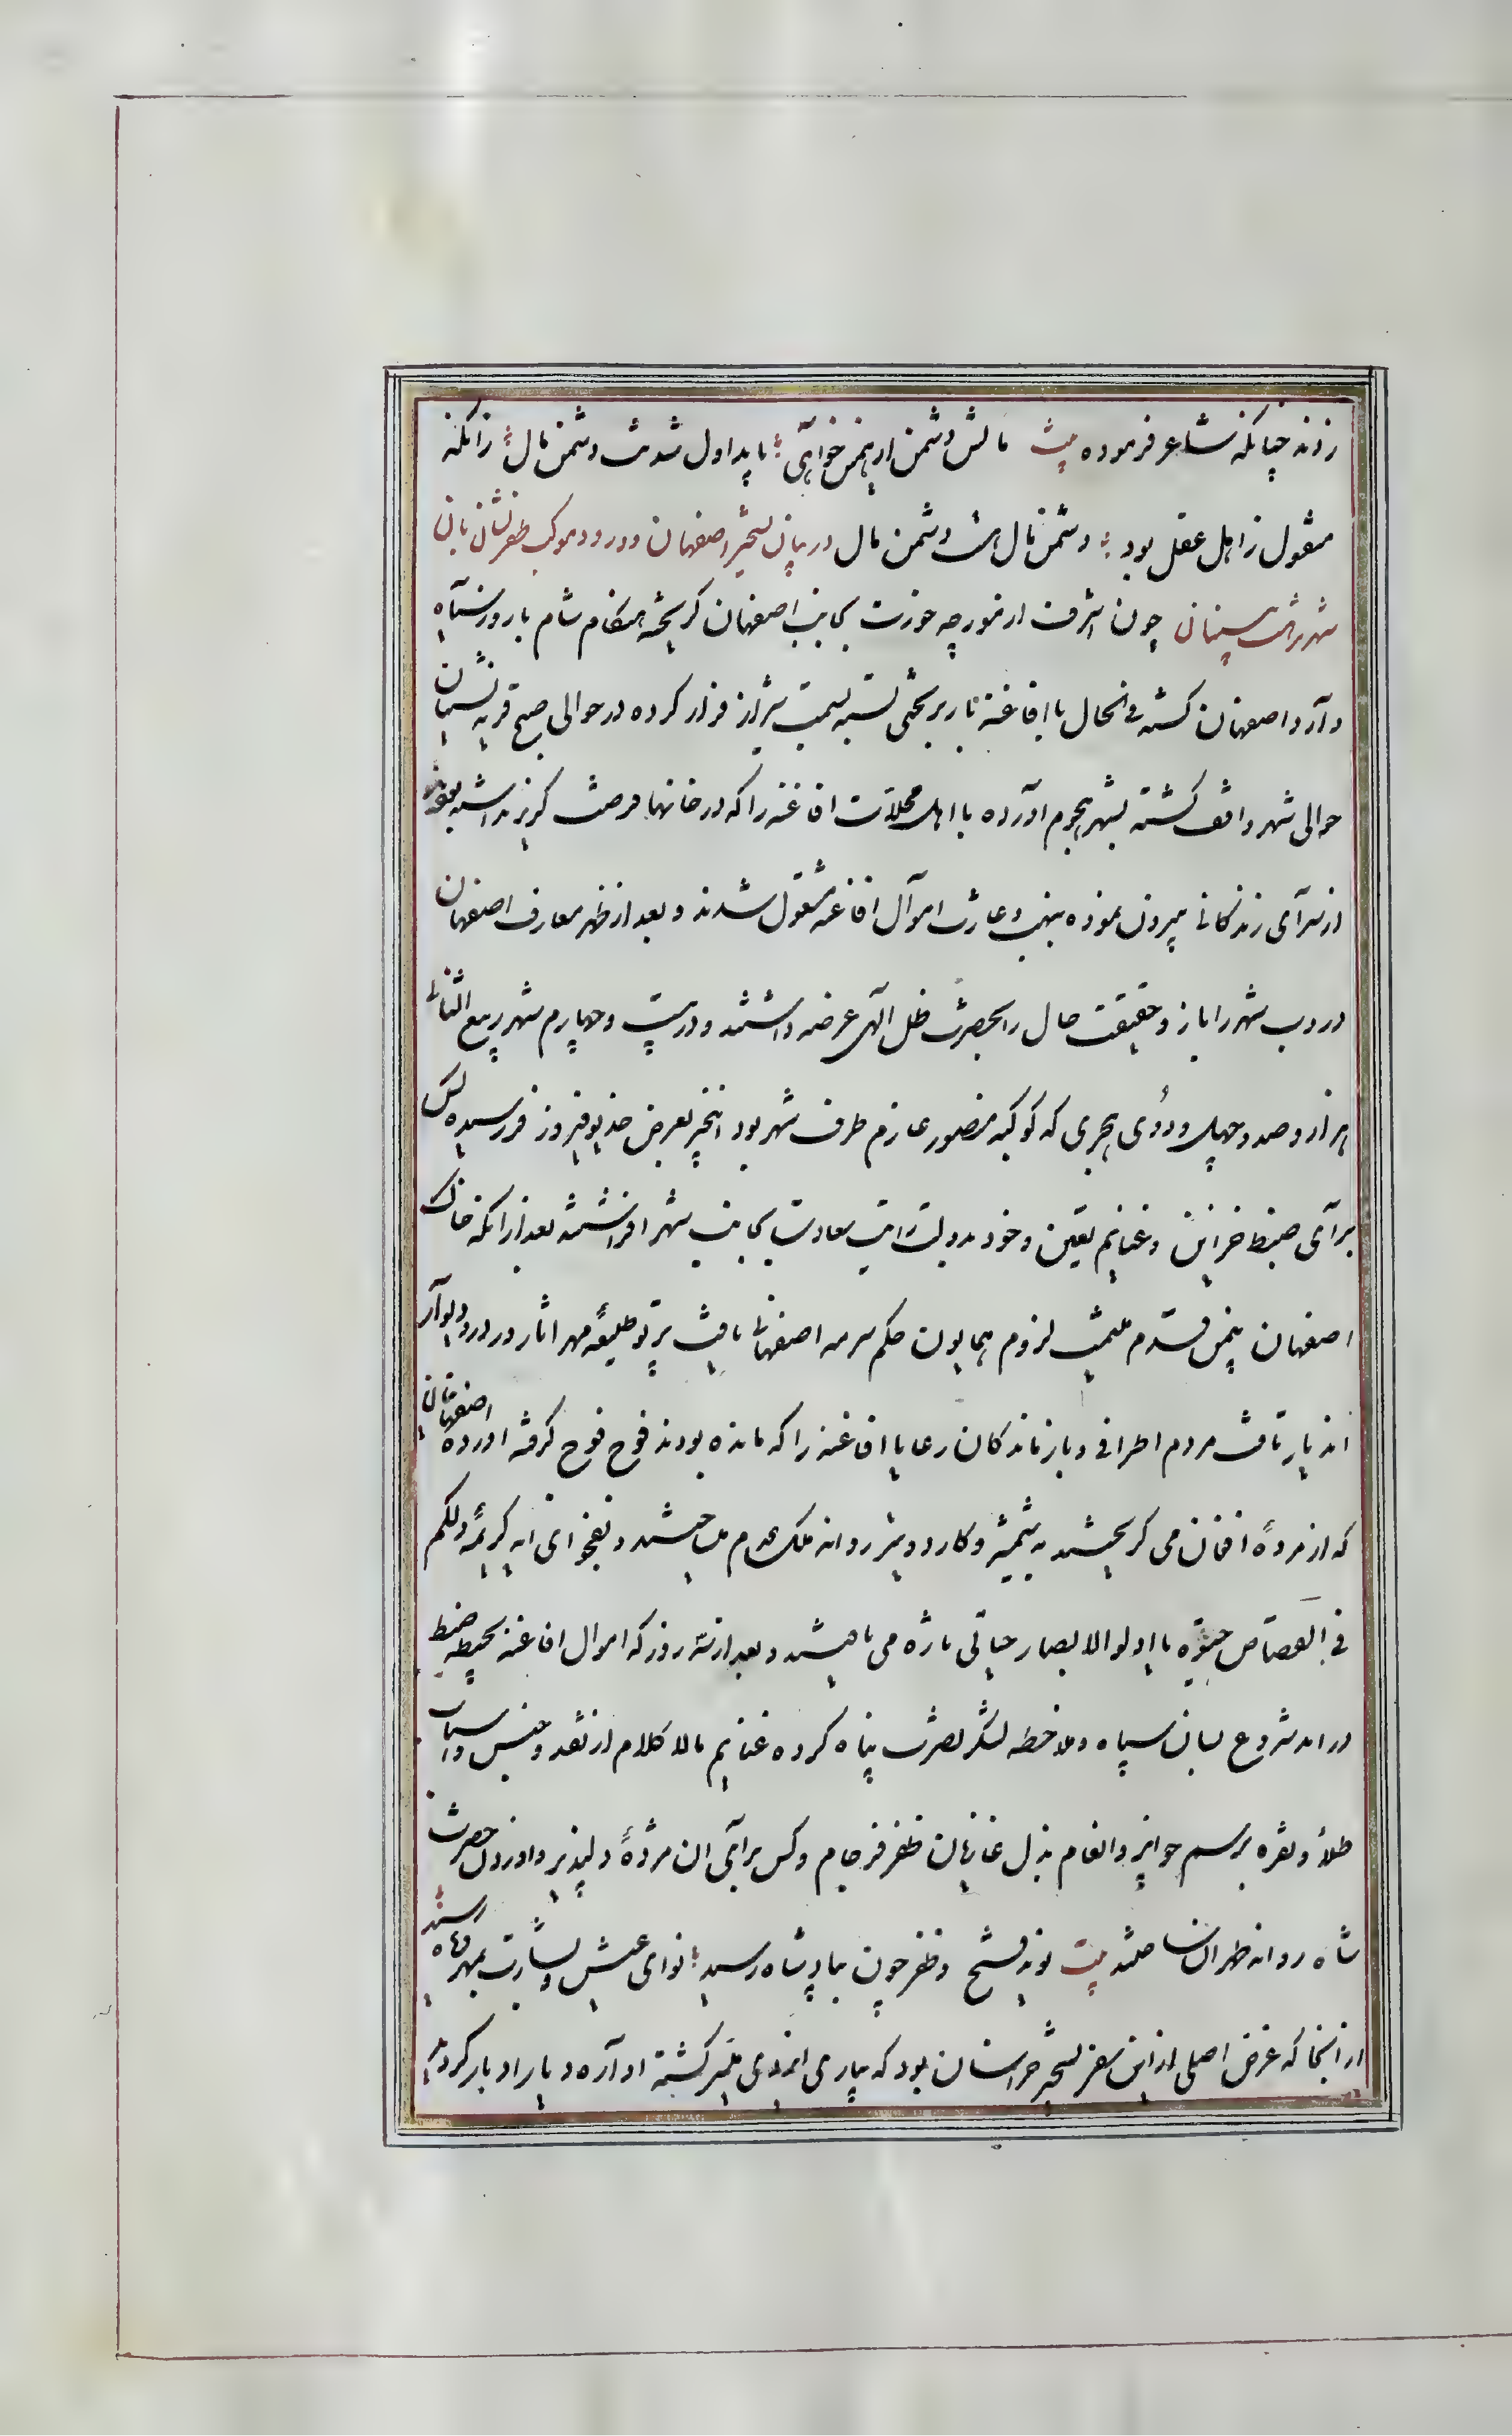 زدند چنانکه شاعر فرموده بیت مالش دشمن ار ز من خواهی باید اول شدنت دشمن مال زانکه
منقول ز اهل عقل بود دشمن مال است دشمن مال در بیان تسخیر اصفهان و ورود موکب ظفر نشان بان
شهر بهشت چون اشرف از مورچه خورت بجانب اصفهان کریخته هنکام شام با روز سیاه
وارد اصفهان کشته فی الحال با افاغنه بار بر بختی بسته بسمت شیراز فرار کرده در حوالی صبح قریه نشینان
حوالی شهر واقف کشته بشهر هجوم آورده با اهل محلات افاغنه را که در خانها فرصت کریز نداشته بعقوبت
از سرای زندکانی بیرون نموده بنهب و غارت اموال افاغنه مشغول شدند و بعد از ظهر معارف اصفهان
دروب شهر را باز و حقیقت حال را بحضرت ظل الهی عرضه داشتند و در بیست و چهارم شهر ربیع الثانی
هزار و صد و چهل و دوی هجری که کوکبه منصور عازم طرف شهر بود اینخبر بعرض خدیو فیروز فر رسیده کس
برای ضبط خزاین و غنایم تعیین و خود بدولت رایت سعادت بجانب شهر افراشتند بعد از انکه خاک
اصفهان بیمن قدم میمنت لزوم همایون حکم سرمه اصفهانی یافت پرتو طلیعه مهر اثار در در و دیوار
اندیار تافت مردم اطرافی و بازماندکان رعایا افاغنه را که مانده بودند فوج فوج کرفته آورده اصفهان
که از مرده افغان می کریختند به شمشیر و کارد و تبر روانه ملک عدم می ساختند و بفحوای ایه کریمه ولکم
فی القصاص حیوة یا اولو الابصار حیاتی تازه می یافتند و بعد از سه روز که اموال افاغنه بحیطه ضبط
درآمد شروع بسان سپاه و ملاحظه لشکر نصرت پناه کرده غنایم مالاکلام از نقد و جنس و اسباب
طلا و نقره برسم جوایز و انعام بذل غازیان ظفر فرجام و کس برای ان مژده دلپذیر و آوردن حضرت
شاه روانه طهران ساختند بیت نوید فتح و ظفر چون بپادشاه رسید نوای عیش و بشارت بمهر و ماه رسید
از آنجا که غرض اصلی از این سفر تسخیر خراسان بود که بیاری ایزدی میسر کشته